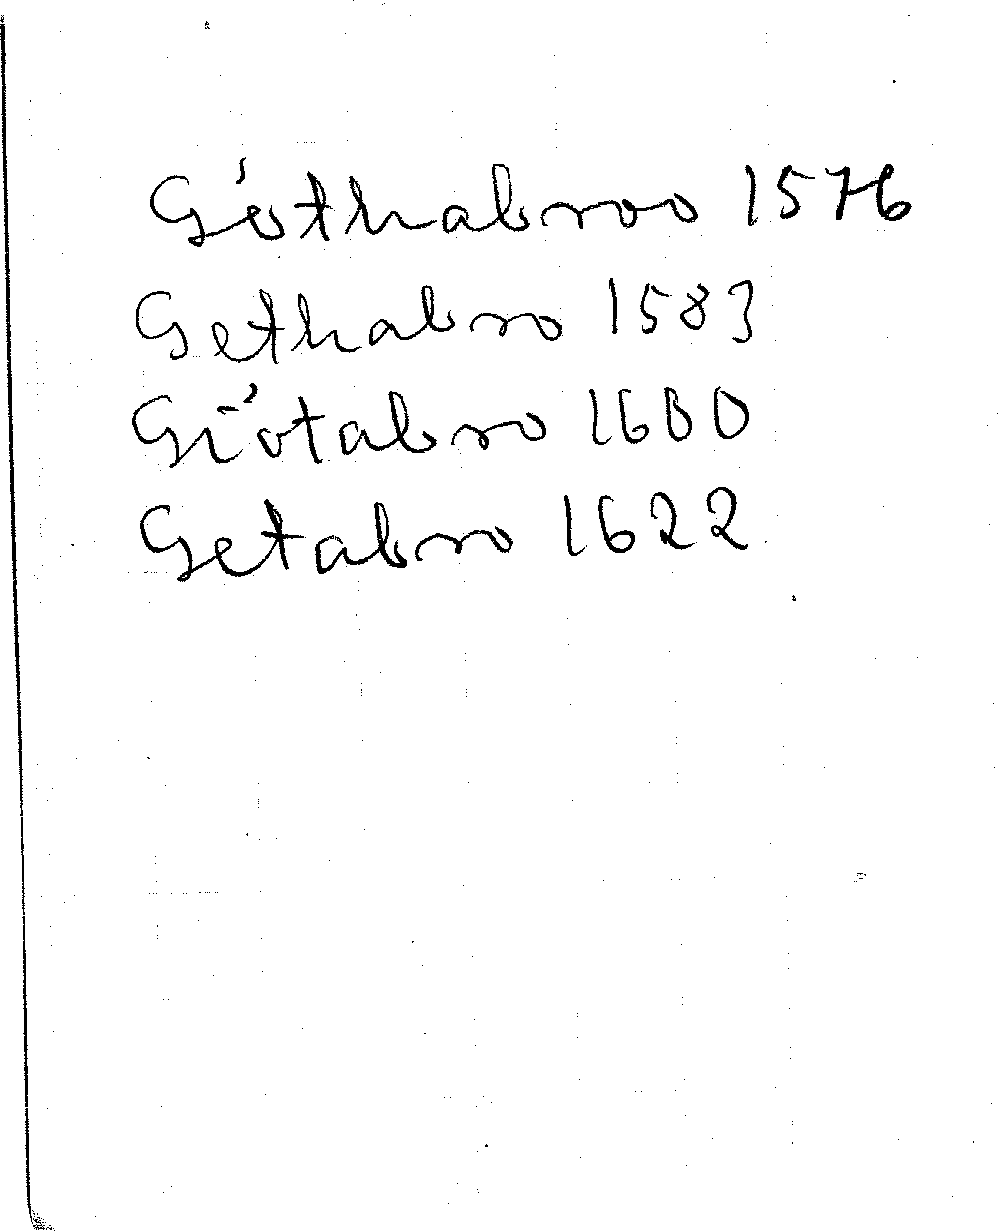 Göthabroo 1576
Gethabro 1583
Giötabro 1600
Getabro 1622